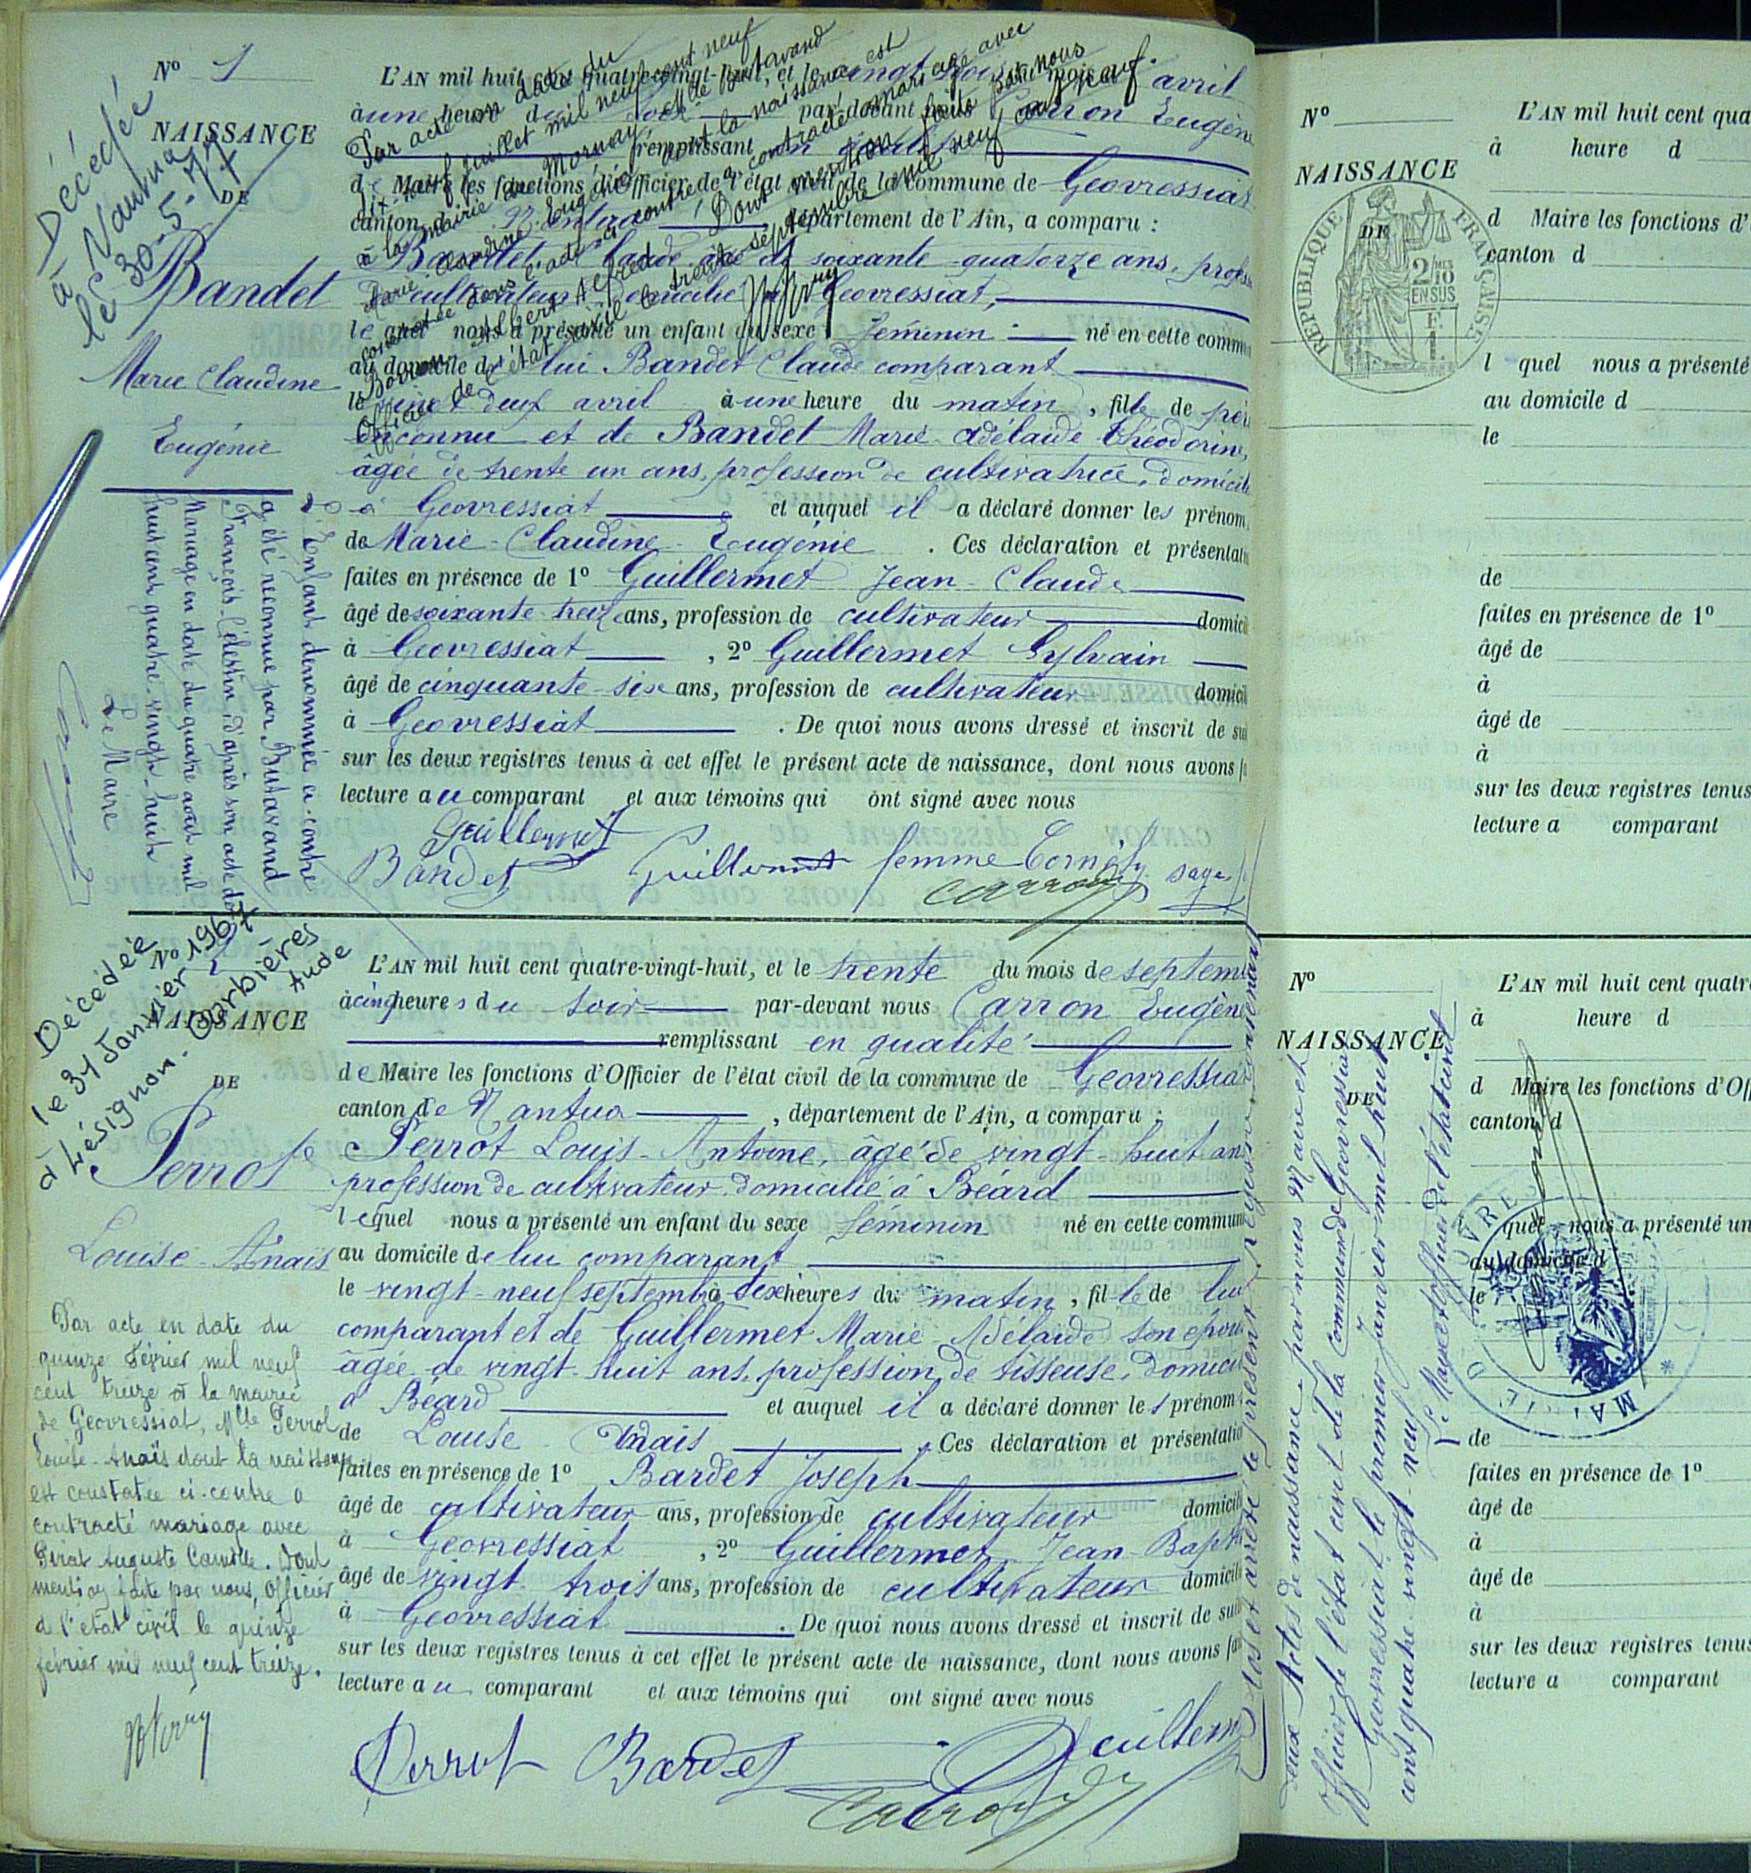 Nº 1
NAISSANCE
DE
Bandet
Marie Claudine
Eugénie
Décédée
à Nantua
le 30-5-77
L'AN mil huit cent quatre-vingt-huit, et le vingt trois du mois d'avril
à une heure du soir par-devant nous Carron Eugène
remplissant en qualité
de Maire les fonctions d'Officier de l'état civil de la commune de Geovressiat
canton de Nantua, département de l'Ain, a comparu :
Bandet Claude âgé de soixante-quatorze ans, profession
de cultivateur domicilié à Geovressiat,
lequel nous a présenté un enfant du sexe féminin né en cette commune
au domicile de lui Bandet Claude comparant
le vingt deux avril à une heure du matin, fille de père
inconnu et de Bandet Marie-Adélaïde Théodorine,
âgée de trente un ans, profession de cultivatrice, domicile
à Geovressiat et auquel il a déclaré donner les prénoms
de Marie-Claudine-Eugénie. Ces déclaration et présentation
faites en présence de 1º Guillermet Jean-Claude
âgé de soixante-treize ans, profession de cultivateur domicil
à Geovressiat, 2º Guillermet Sylvain
âgé de cinquante-six ans, profession de cultivateur domicil
à Geovressiat. De quoi nous avons dressé et inscrit de sui
sur les deux registres tenus à cet effet le présent acte de naissance, dont nous avons f
lecture au comparant et aux témoins qui ont signé avec nous
Guillermet
Bandet Guillermet femme Cornély sage f
Carron
Par acte en date du
dix-neuf juillet mil neuf cent neuf
à la mairie de Mornay Mlle Butavand
Marie Claudine Eugénie dont la naissance est
constatée dans l'acte ci-contre a contracté mariage avec
Albert Alfred. Dont mention faite par nous
Officier de l'état civil le trente septembre mil neuf cent neuf
L'Enfant dénommée ci-contre
a été reconnue par Butavand
François-Célestin, d'après son acte de
Mariage en date du quatre août mil
huit cent quatre-vingt-huit
Le Maire
Nº 2
NAISSANCE
DE
Perrot
Louise-Anaïs
Décédée
le 31 Janvier 1967
à Lésignan-Corbières
Aude
L'AN mil huit cent quatre-vingt-huit, et le trente du mois de septem
à cinq heures du soir par-devant nous Carron Eugène
remplissant en qualité
de Maire les fonctions d'Officier de l'état civil de la commune de Geovressiat
canton de Nantua, département de l'Ain, a comparu :
Perrot Louis-Antoine, âgé de vingt-huit ans
profession de cultivateur domicilié à Béard
lequel nous a présenté un enfant du sexe féminin né en cette commune
au domicile de lui comparant
le vingt-neuf septembre à dix heures du matin, fille de lui
comparant et de Guillermet Marie Adélaïde son épou
âgée de vingt-huit ans, profession de tisseuse, domicil
à Béard et auquel il a déclaré donner les prénoms
de Louise Anaïs. Ces déclaration et présentation
faites en présence de 1º Bardet Joseph
âgé de cultivateur ans, profession de cultivateur domicil
à Geovressiat, 2º Guillermet Jean-Bapti
âgé de vingt-trois ans, profession de cultivateur domicil
à Geovressiat. De quoi nous avons dressé et inscrit de sui
sur les deux registres tenus à cet effet le présent acte de naissance, dont nous avons fa
lecture au comparant et aux témoins qui ont signé avec nous
Perrot Bardet Guillerm
Carron
Par acte en date du
quinze février mil neuf
cent treize à la mairie
de Geovressiat, Mlle Perrot
Louise-Anaïs dont la naissance
est constatée ci-contre a
contracté mariage avec
Auguste Camille. Dont
mention faite par nous, Officier
d l'état civil le quinze
février mil neuf cent treize.
Clos et arrêté le présent registre contenant
deux Actes de naissance, par nous Maire et
Officier de l'état civil de la Commune de Geovressiat
à Geovressiat le premier Janvier mil huit
cent quatre-vingt-neuf
Le Maire et officier de l'état civil
Nº
NAISSANCE
DE
RÉPUBLIQUE FRANÇAISE
2/10
EN SUS
L'AN mil huit cent qua
à heure d
d Maire les fonctions d'
canton d
l quel nous a présenté
au domicile d
le
de
faites en présence de 1º
âgé de
à
âgé de
à
sur les deux registres tenus
lecture a comparant
Nº
NAISSANCE
DE
L'AN mil huit cent quatr
à heure d
d Maire les fonctions d'Of
canton d
quel nous a présenté un
au domicile d
le
de
faites en présence de 1º
âgé de
à
âgé de
à
sur les deux registres tenus
lecture a comparant